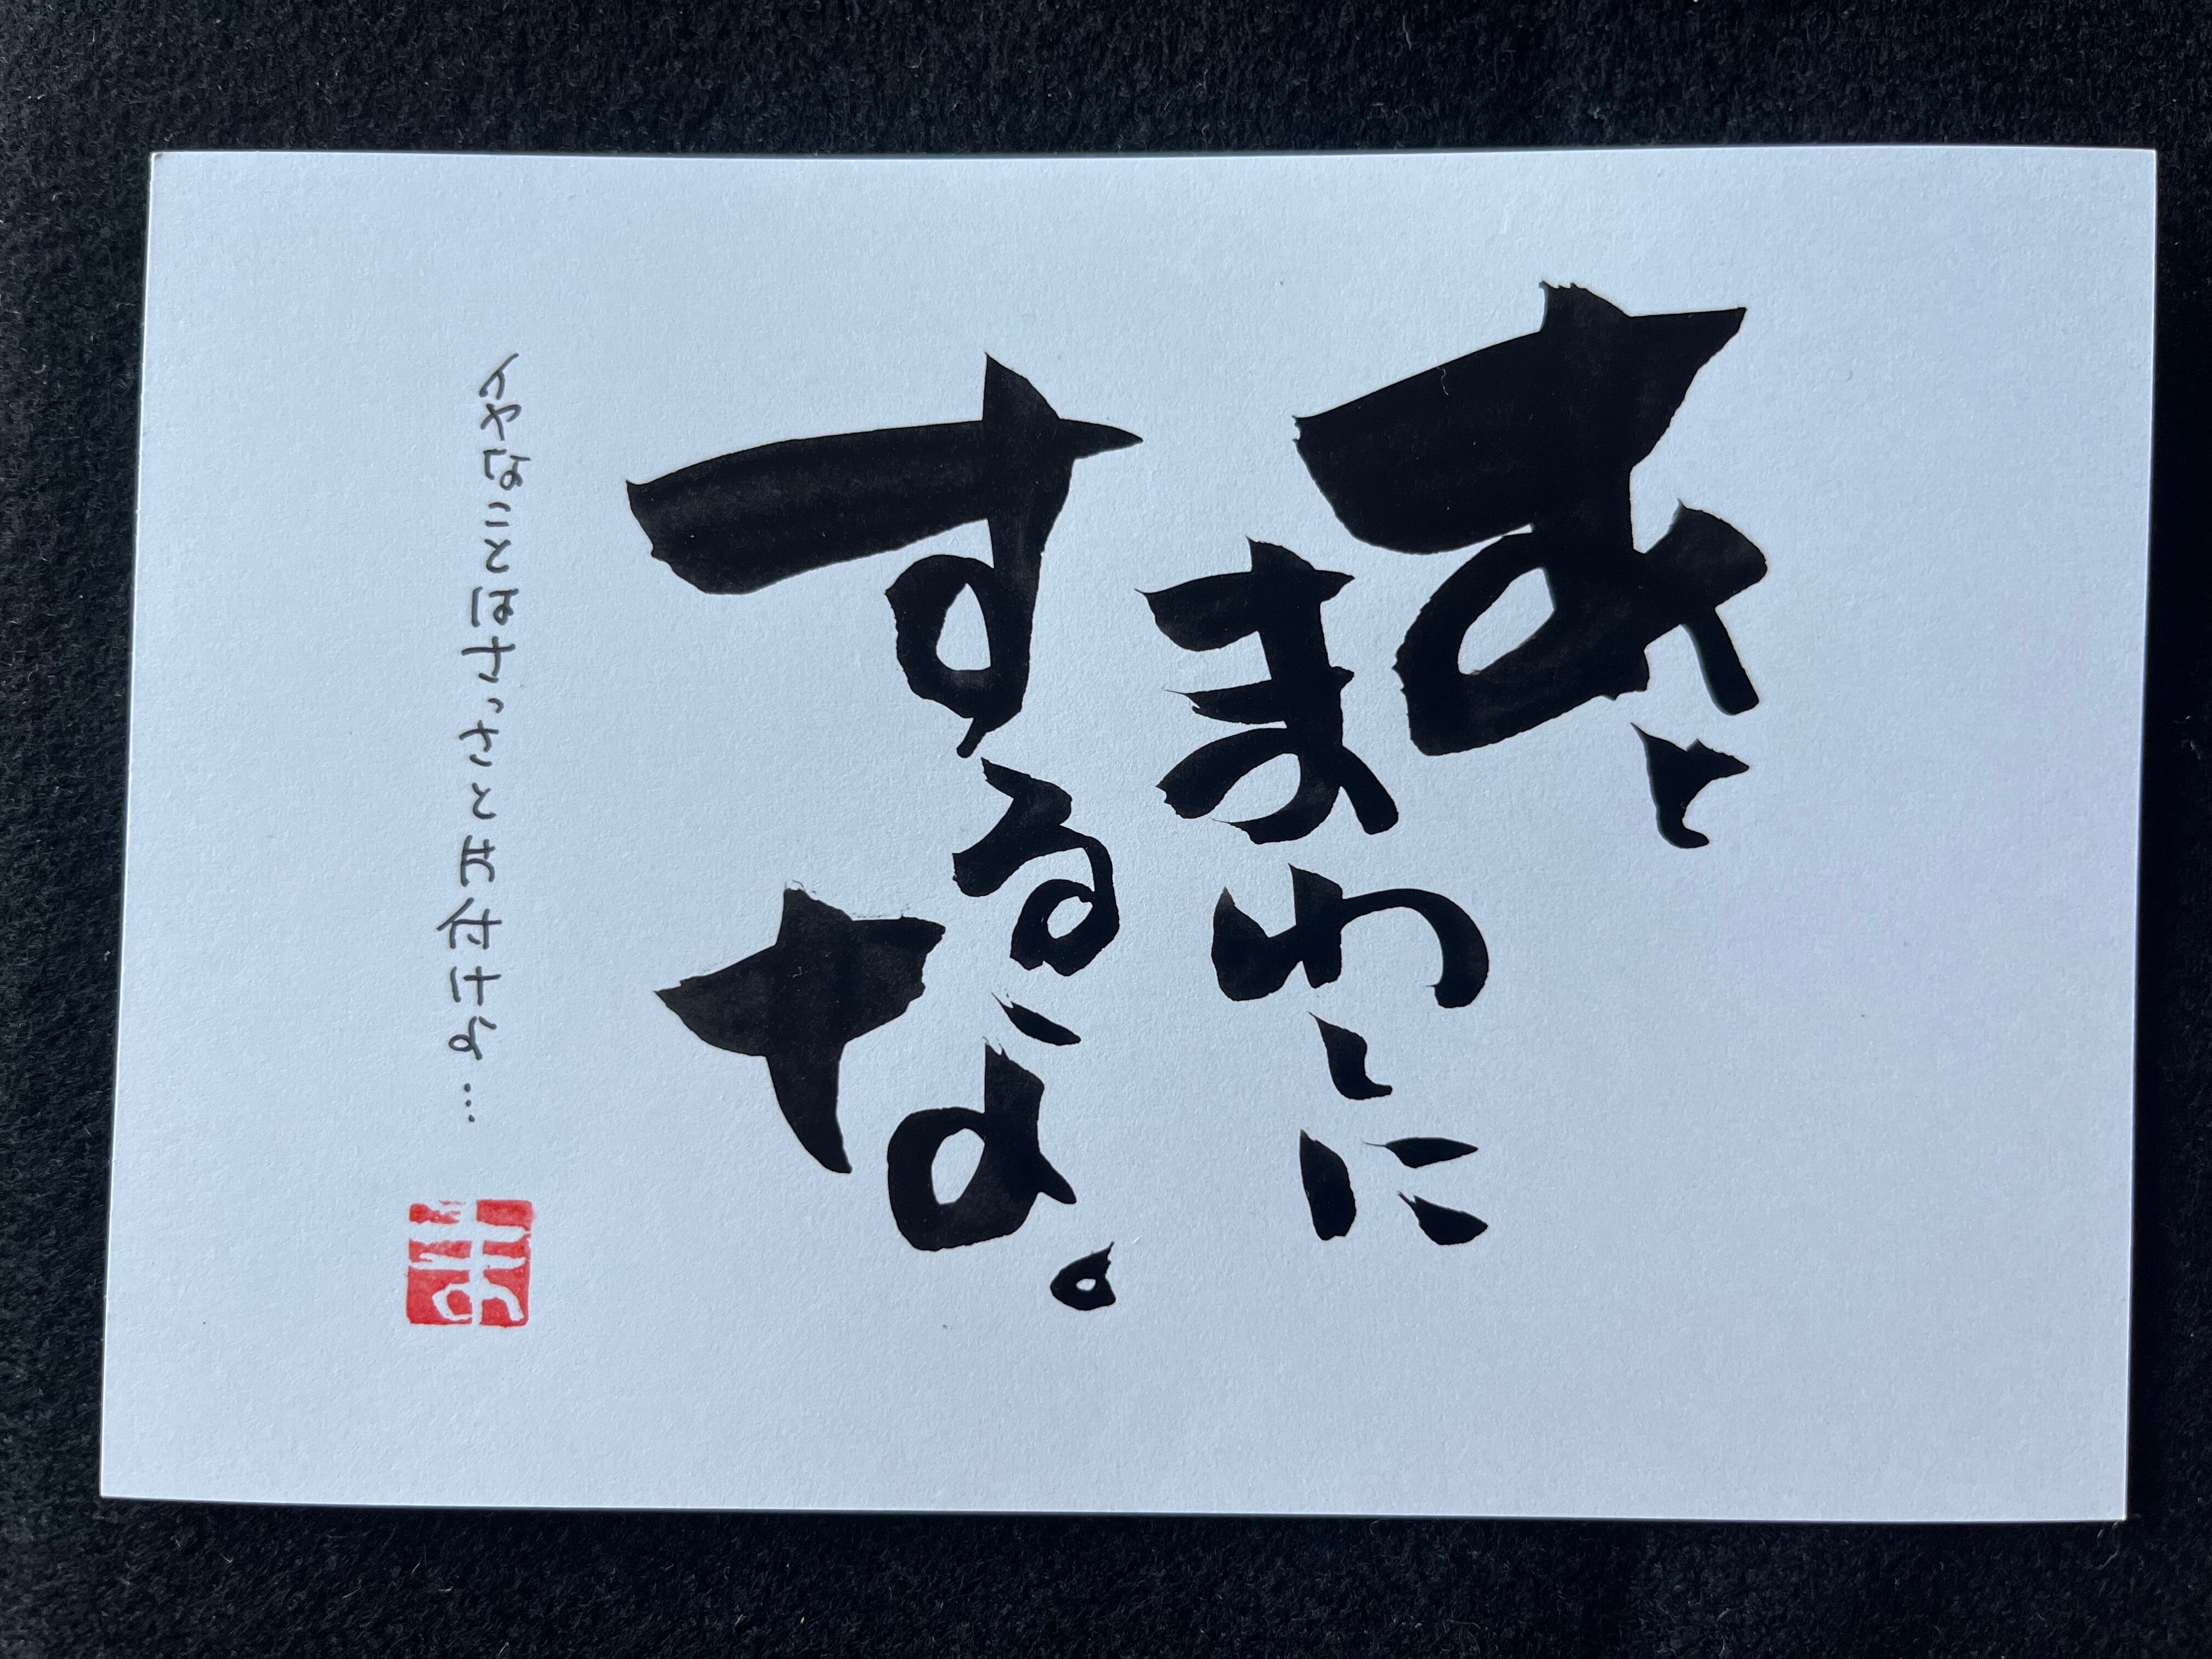 あと
まわしに
するな。
イヤなことはさっさと片付ける…